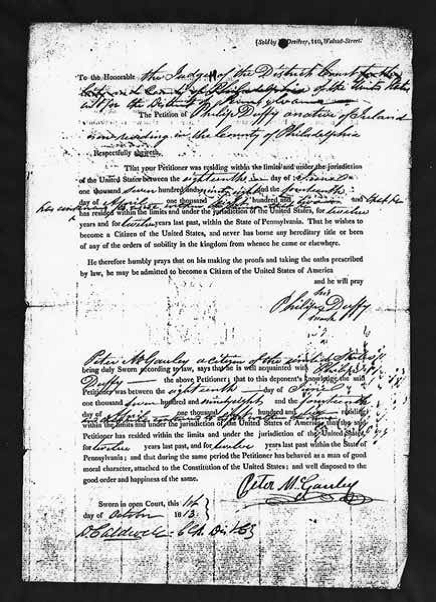 [Sold by Desilver, 110, Walnut-Street]
To the Honorable the Judges of the District Court for the
City and County of Philadelphia of the United States
in & for the District of Pennsylvania
The Petition of Philip Duffy a native of Ireland
now residing in the County of Philadelphia
Respectfully sheweth,
That your Petitioner was residing within the limits and under the jurisdiction
of the United States between the eighteenth day of
one thousand seven hundred and ninety eight and the fourteenth
day of April one thousand eight hundred and two and that he
has resided within the limits and under the jurisdiction of the United States, for twelve
years and for twelve years last past, within the State of Pennsylvania. That he wishes to
become a Citizen of the United States, and never has borne any hereditary title or been
of any of the orders of nobility in the kingdom from whence he came or elsewhere.
He therefore humbly prays that on his making the proofs and taking the oaths prescribed
by law, he may be admitted to become a Citizen of the United States of America
and he will pray
his
Philip Duffy
mark
Peter McGauley a citizen of the United States
being duly Sworn according to law, says that he is well acquainted with Philip
Duffy the above Petitioner; that to this deponent's knowledge the said
Petitioner was between the eighteenth day of June
one thousand seven hundred and ninety eight and the fourteenth
day of April one thousand eight hundred and two residing
within the limits and under the jurisdiction of the United States of America, that the said
Petitioner has resided within the limits and under the jurisdiction of the United States,
for twelve years last past, and for twelve years last past within the State of
Pennsylvania; and that during the same period the Petitioner has behaved as a man of good
moral character, attached to the Constitution of the United States, and well disposed to the
good order and happiness of the same.
Peter McGauley
Sworn in open Court, this 14
day of October 1813
D. Caldwell Clk Dist Ct